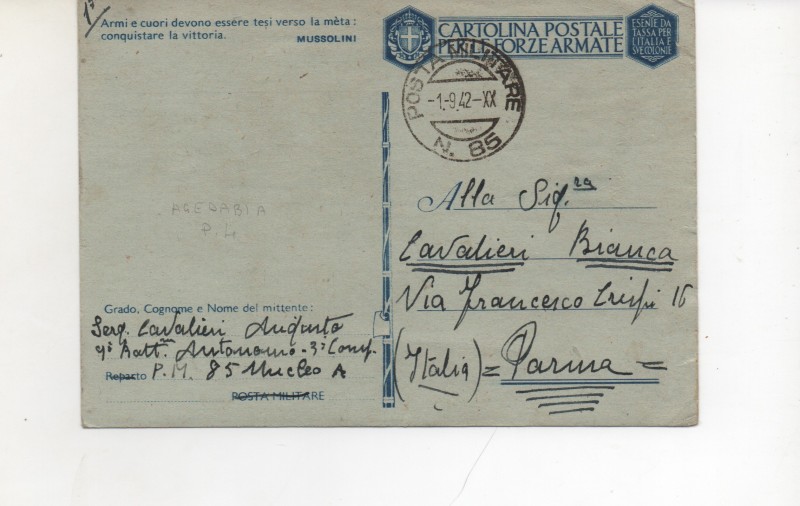 1ª
Armi e cuori devono essere tesi verso la mèta:
conquistare la vittoria.
MUSSOLINI
CARTOLINA POSTALE
PER LE FORZE ARMATE
ESENTE DA
TASSA PER
L'ITALIA E
SUE COLONIE
POSTA MILITARE
-1.-9.42-XX
N. 85
AGEDABIA
P.L.
Alla Sig.ra
Cavalieri Bianca
Via Francesco Crispi 16
(Italia) = Parma =
Grado, Cognome e Nome del mittente:
Serg. Cavalieri Augusto
Batt. Autonomo - 3ª Comp.
Reparto P.M. 85 Nucleo A
POSTA MILITARE